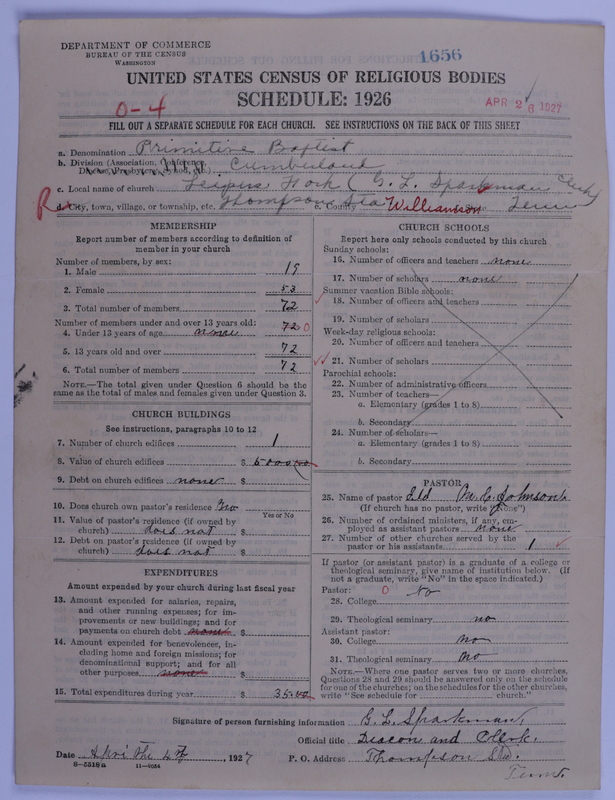 DEPARTMENT OF COMMERCE
BUREAU OF THE CENSUS
WASHINGTON
1656
UNITED STATES CENSUS OF RELIGIOUS BODIES
SCHEDULE: 1926
APR 26 1927
0-4
FILL OUT A SEPARATE SCHEDULE FOR EACH CHURCH. SEE INSTRUCTIONS ON THE BACK OF THIS SHEET
a. Denomination Primitive Baptist
b. Division (Association, Conference, Diocese, Presbytery, Synod, etc.) Cumberland
c. Local name of church Leapers Fork (G. L. Sparkman Clerk)
d. City, town, village, or township, etc. Thompson Sta e. County Williamson State Tenn
MEMBERSHIP
Report number of members according to definition of
member in your church
Number of members, by sex:
1. Male 19
2. Female 53
3. Total number of members 72
Number of members under and over 13 years old: 72 0
4. Under 13 years of age none
5. 13 years old and over 72
6. Total number of members 72
NOTE.—The total given under Question 6 should be
same as the total of males and females given under Question 3.
CHURCH BUILDINGS
See instructions, paragraphs 10 to 12
7. Number of church edifices 1
8. Value of church edifices $ 5000.00
9. Debt on church edifices none $
10. Does church own pastor's residence? no
Yes or No
11. Value of pastor's residence (if owned by
church) does not $
12. Debt on pastor's residence (if owned by
church) does not $
EXPENDITURES
Amount expended by your church during last fiscal year
13. Amount expended for salaries, repairs,
and other running expenses; for im-
provements or new buildings; and for
payments on church debt none $
14. Amount expended for benevolences, in-
cluding home and foreign missions; for
denominational support; and for all
other purposes none $
15. Total expenditures during year $ 35.00
CHURCH SCHOOLS
Report here only schools conducted by this church
Sunday schools:
16. Number of officers and teachers none
17. Number of scholars none
Summer vacation Bible schools:
18. Number of officers and teachers
19. Number of scholars
Week-day religious schools:
20. Number of officers and teachers
21. Number of scholars
Parochial schools:
22. Number of administrative officers
23. Number of teachers—
a. Elementary (grades 1 to 8)
b. Secondary
24. Number of scholars—
a. Elementary (grades 1 to 8)
b. Secondary
PASTOR
25. Name of pastor Eld M. C. Johnson
(If church has no pastor, write "None")
26. Number of ordained ministers, if any, em-
ployed as assistant pastors none
27. Number of other churches served by the
pastor or his assistants 1
If pastor (or assistant pastor) is a graduate of a college or
theological seminary, give name of institution below. (If
not a graduate, write "No" in the space indicated.)
Pastor: 0 No
28. College
29. Theological seminary no
Assistant pastor:
30. College no
31. Theological seminary no
NOTE.—Where one pastor serves two or more churches,
Questions 28 and 29 should be answered only on the schedule
for one of the churches; on the schedules for the other churches,
write "See schedule for church."
Signature of person furnishing information G. L. Sparkman,
Official title Deacon and Clerk.
Date April the 4th, 1927 P. O. Address Thompson Sta.
Tenn.
8-5518a 11-9054